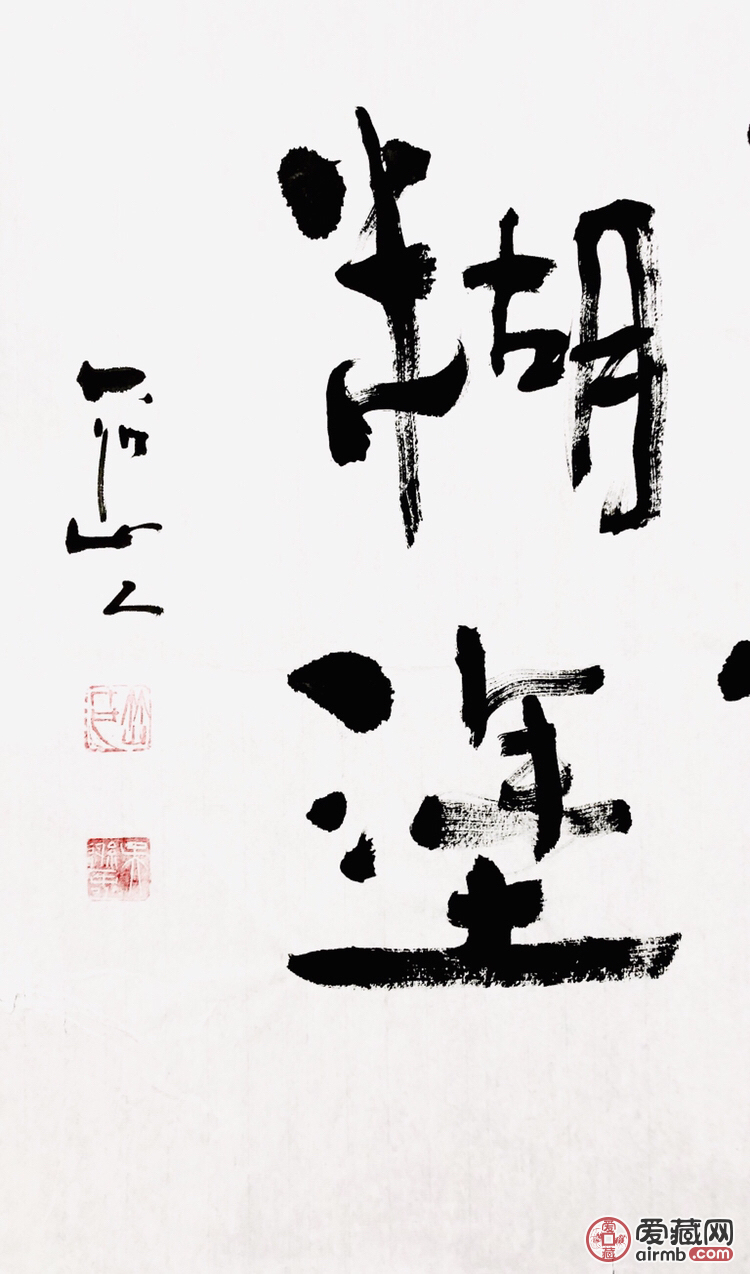 糊塗
山人
爱藏网
airmb.com